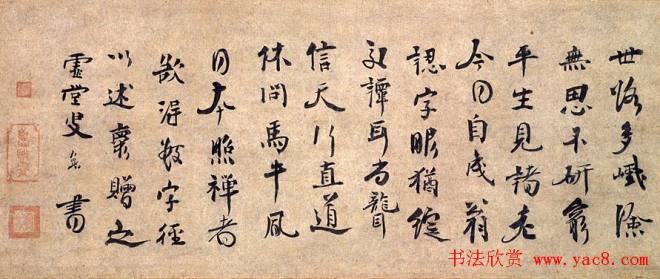 世路多巇險
無思不研窮
平生見諸老
今日自成翁
認字眼猶綻
交譚耳尚聾
信天行直道
休問馬牛風
日本照禪者
欲得數字徑
以述懷贈之
虛堂叟 書
书法欣赏
www.yac8.com